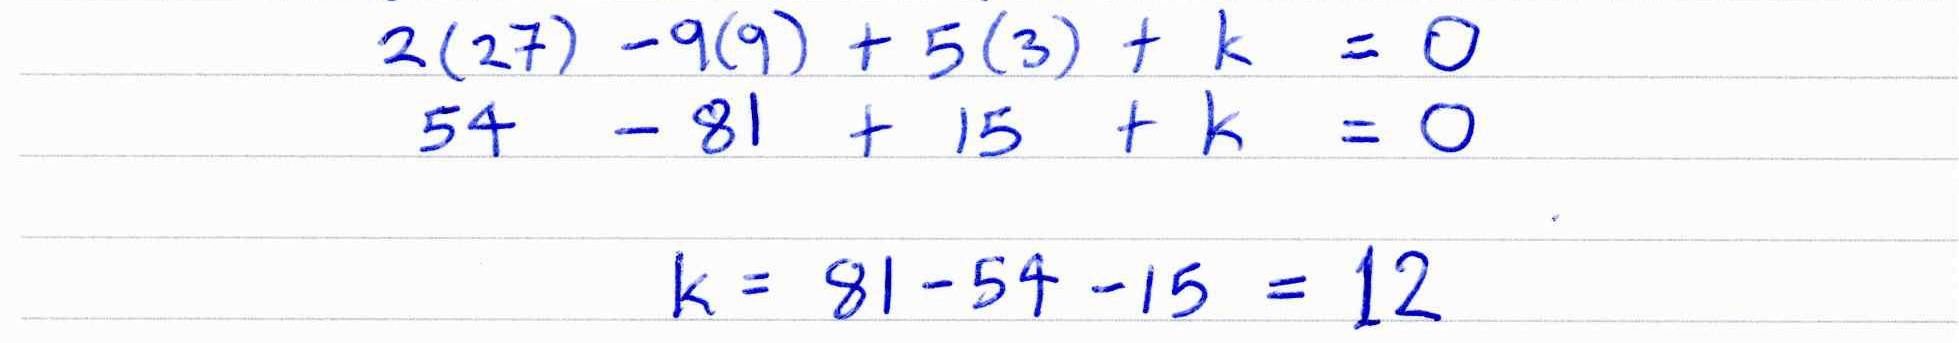 2(27) - 9(9) + 5(3) + k = 0
54 - 81 + 15 + k = 0
k = 81 - 54 - 15 = 12